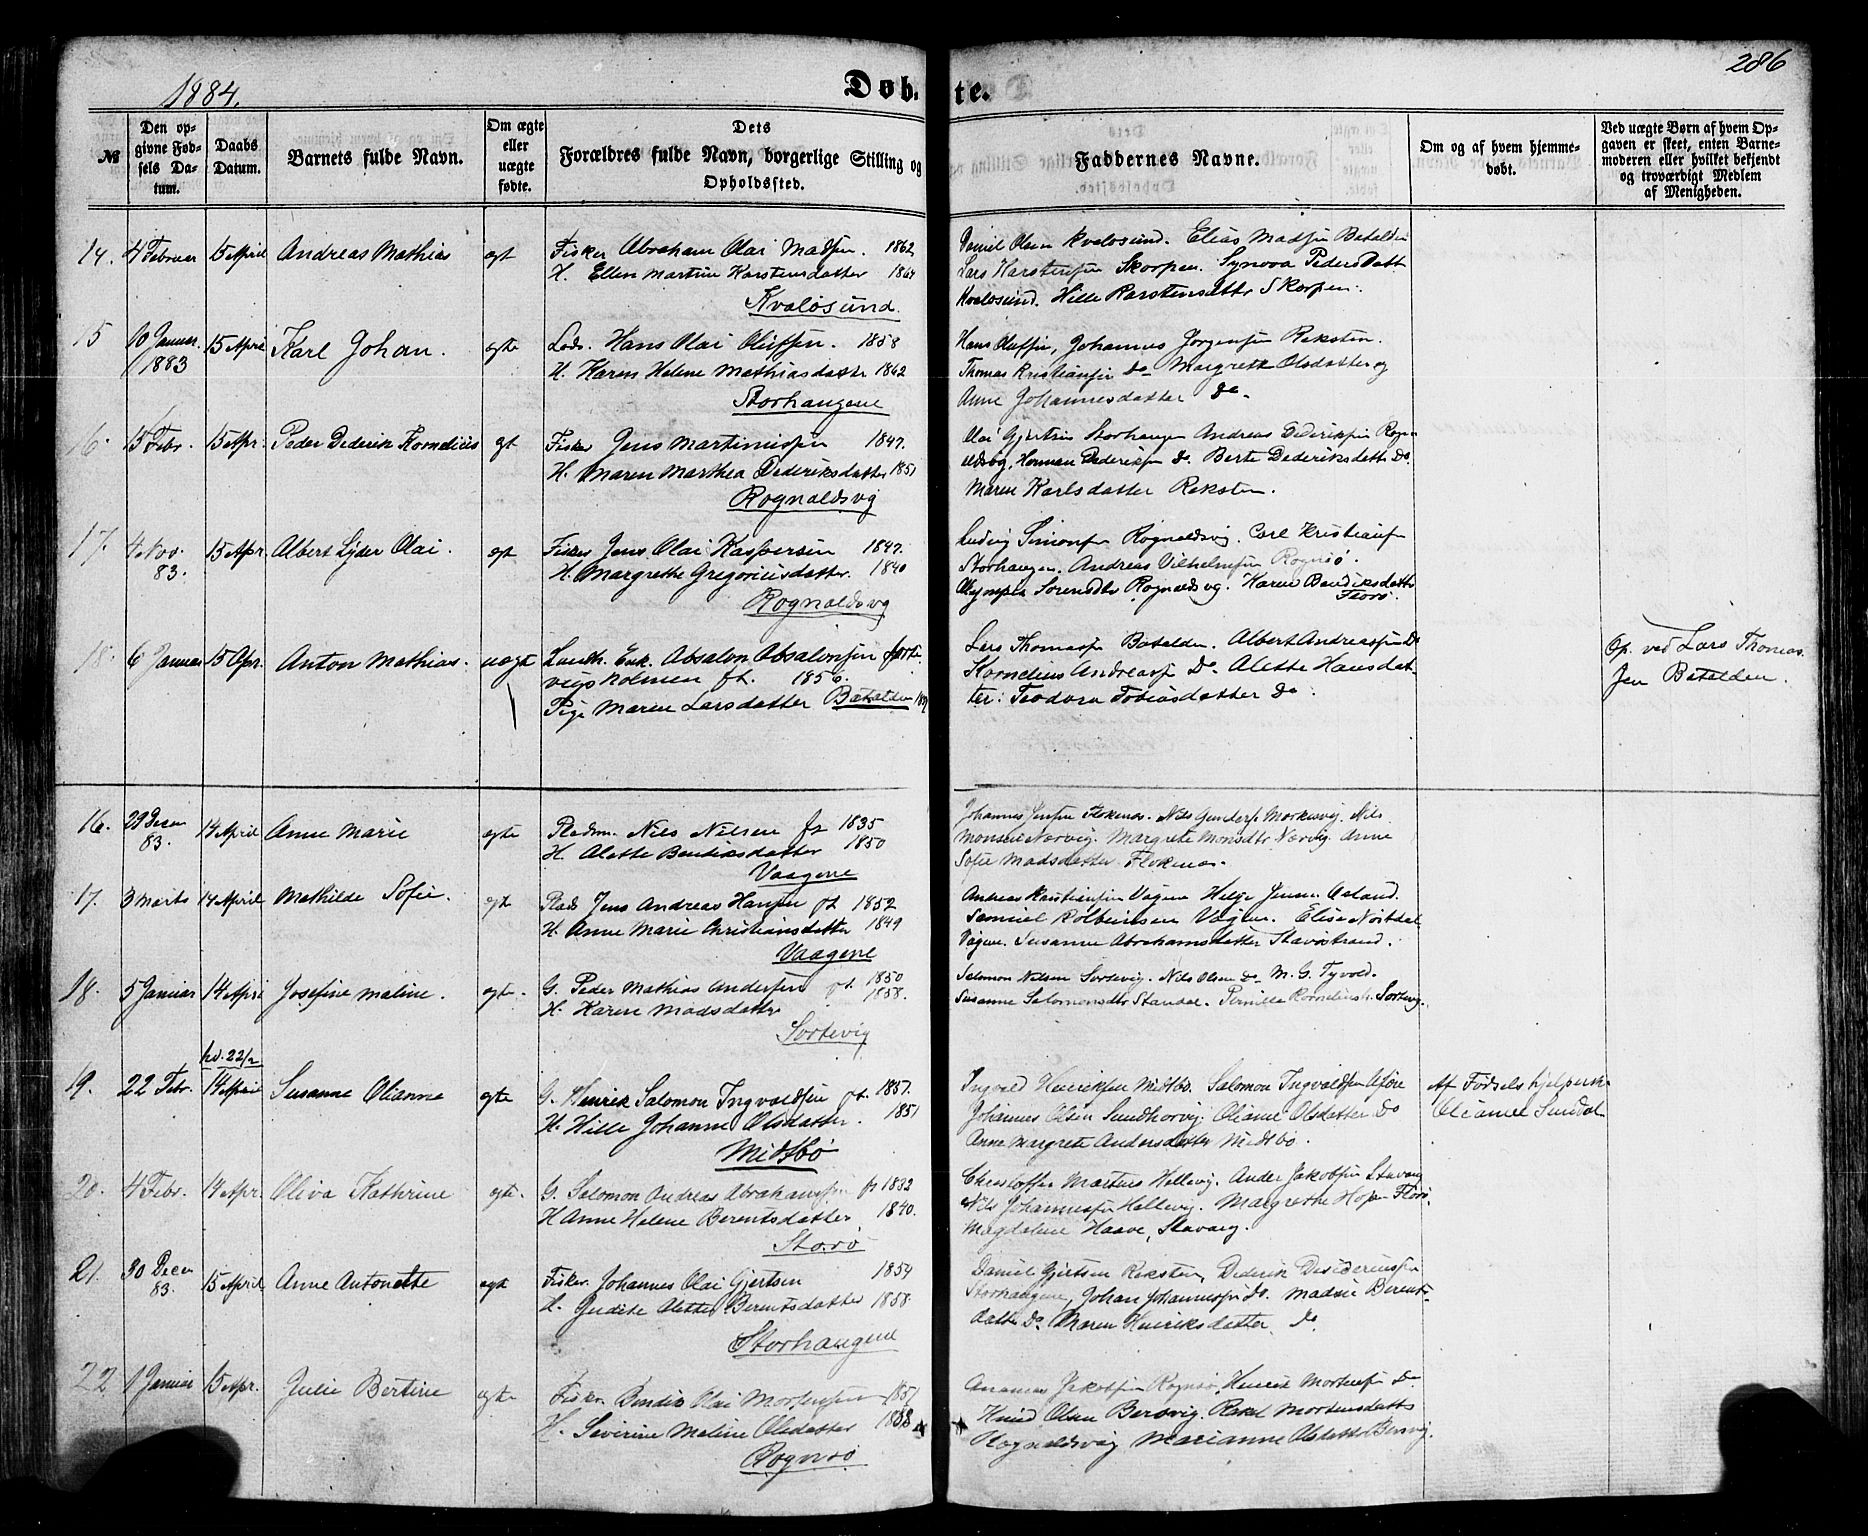 1884.
Døbte.
286
№
Den opgivne Fødsels Datum.
Daabs Datum.
Barnets fulde Navn.
Om ægte eller uægte fødte.
Dets Forældres fulde Navn, borgerlige Stilling og Opholdssted.
Faddernes Navne.
Om og af hvem hjemmedøbt.
Ved uægte Børn af hvem Opgaven er skeet, enten Barnemoderen eller hvilket bekjendt og troværdigt Medlem af Menigheden.
14. 4 Februar 15 April Andreas Mathias ægt
Fisker Abraham Olai Madsen. 1862
H. Ellen Martine Karstensdatter 1864
Kvalösund.
Daniel Olsen Kvalosund. Elias Madsen Batalden
Lars Karstensen Skorpen. Synova Peders Datt
Kvalosund. Hille Karstensdatter Skorpen.
15 10 Januar. 1883 15 April Karl Johan. ægte
Lods. Hans Olai Olufsen. 1858
H. Karen Helene Mathiasdatter 1862
Storhaugene
Hans Olufsen, Johannes Jørgensen Reksten.
Thomas Kristiansen Do Margrete Olsdatter og
Anne Johannesdatter Do.
16. 15 Febr. 15 Apr. Peder Dederik Kornelius ægt
Fisker Jens Martinusen 1847.
H. Maren Marthea Dederiksdatter 1851
Rognaldsvg
Olai Gjertsen Storhaugen Andreas Dederiksen Rognaldsvg, Herman Dederiksen Do. Berte Dederiksdatter Do.
Maren Karlsdatter Reksten.
17. 4 Nov. 83. 15 Apr. Albert Lyder Olai. ægt
Fisker Jens Olai Kaspersen 1847.
H. Margrethe Gregoriusdatter. 1840
Rognaldsvg
Ludvig Simonsen Rognaldsvig. Carl Kristiansen
Storhaugen. Andreas Vilhelmsen Rognsö.
Olympia Sorensdtr Rognaldsvg. Karen Bendiksdatter
Florö.
18. 6 Januar 15 Apr. Anton Mathias. uægt
Enk. Absalon Absalonsen
holmen ft. 1856.
Pige Maren Larsdatter Batalden
Lars Thomasen Batalden. Albert Andreassen Do
Kornelius Andreasen Do. Alette Hansdatter. Teodora Tobiasdatter Do.
Op. ved Lars Thomasen Batalden.
16. 29 Decem 83. 14 April Anne Marie ægte
Pladsm. Nils Nilsen ft 1835
H. Alette Bendiksdatter 1850
Vaagene
Johannes Flokenes. Nils Morkesvig. Nils
Monsen Nærvig. Margrete Monsdtr Nærvig. Anne
Sofie Madsdatter Flokenes.
17. 3 Marts 14 April Mathilde Sofie. ægte
Plads Jens Andreas Hansen ft 1852
H. Anne Marie Christiansdatter 1849
Vaagene
Andreas Kristiansen Vagene Helge Jensen Aseland.
Samuel Kolbeinsen Vågene. Elise Nostdal
Vågene. Susanne Abrahamsdatter Stavöstrand.
18. 5 Januar 14 April Josefine Maline. ægte.
G. Peder Mathias Andersen ft. 1850
H. Karen Madsdatter 1858.
Sortevig
Salomon Nilsen Sortevig. Nils Olsen Do. M. G. Tyvold.
Susanne Salomonsdtr Standal. Pernille Korneliusdtr. Sortevig.
19. 22 Febr. hd. 22/2 14 April Susanne Olianna ægte
G. Henrik Salomon Ingvaldsen ft. 1857.
H. Hille Johanne Olsdatter. 1851
Midtbö
Ingvald Henriksen Midtbö. Salomon Ingvaldsen
Johannes Olsen Oliane Olsdatter Do
Anne Margrete Andersdatter Midtbö.
Af Fødselshjelpersk.
Oliane Sundal
20. 4 Febr. 14 Apr. Oliva Kathrine ægte.
G. Salomon Andreas Abrahamsen ft 1832
H. Anne Helene Berentsdatter 1840.
Storö
Christoffer Martinus Hellevig. Anders Jakobsen Stavang
Nils Johannesen Hellevig. Margrethe Hope Florö.
Magdalene Haave, Stavang.
21. 30 Decem 83. 15 April Anne Antonette ægt
Fisker. Johannes Olai Gjertsen 1854
H. Gudite Alette Berentsdatter 1858.
Storhaugene
Daniel Gjertsen Reksten, Dederik Desideriussen
Storhaugene, Johan Johannesen Do. Madsie Berentsdatter Do Maren Henriksdatter Do
22 1 Januar 15 Apr. Julie Bertine ægte
Fisker Bendix Olai Mortensen 1857
H. Severine Maline Olsdatter 1858
Rognsö
Ananias Jakobsen Rognsö, Henrik Mortensen Do
Olsen Berovig. Rakel Mortensdatter
Rognaldsvåg Marianne Olsdatter Berovig.